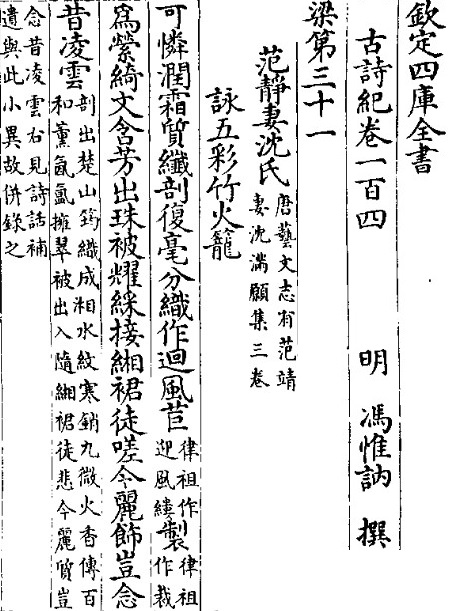 欽定四庫全書
古詩紀卷一百四 明 馮惟訥 撰
梁第三十一
范靜妻沈氏 唐藝文志有范靖
妻沈滿願集三卷
詠五彩竹火籠
可憐潤霜質纖剖復毫分織作迴風苣 律祖作迎風縷 製 律祖作裁
為縈綺文含芳出珠被耀綵接緗裙徒嗟今麗飾豈念
昔凌雲 剖出楚山筠織成湘水紋寒銷九微火香傳百
和薰氤氳擁翠被出入隨緗裙徒悲今麗質豈
念昔凌雲右見詩話補
遺與此小異故併錄之